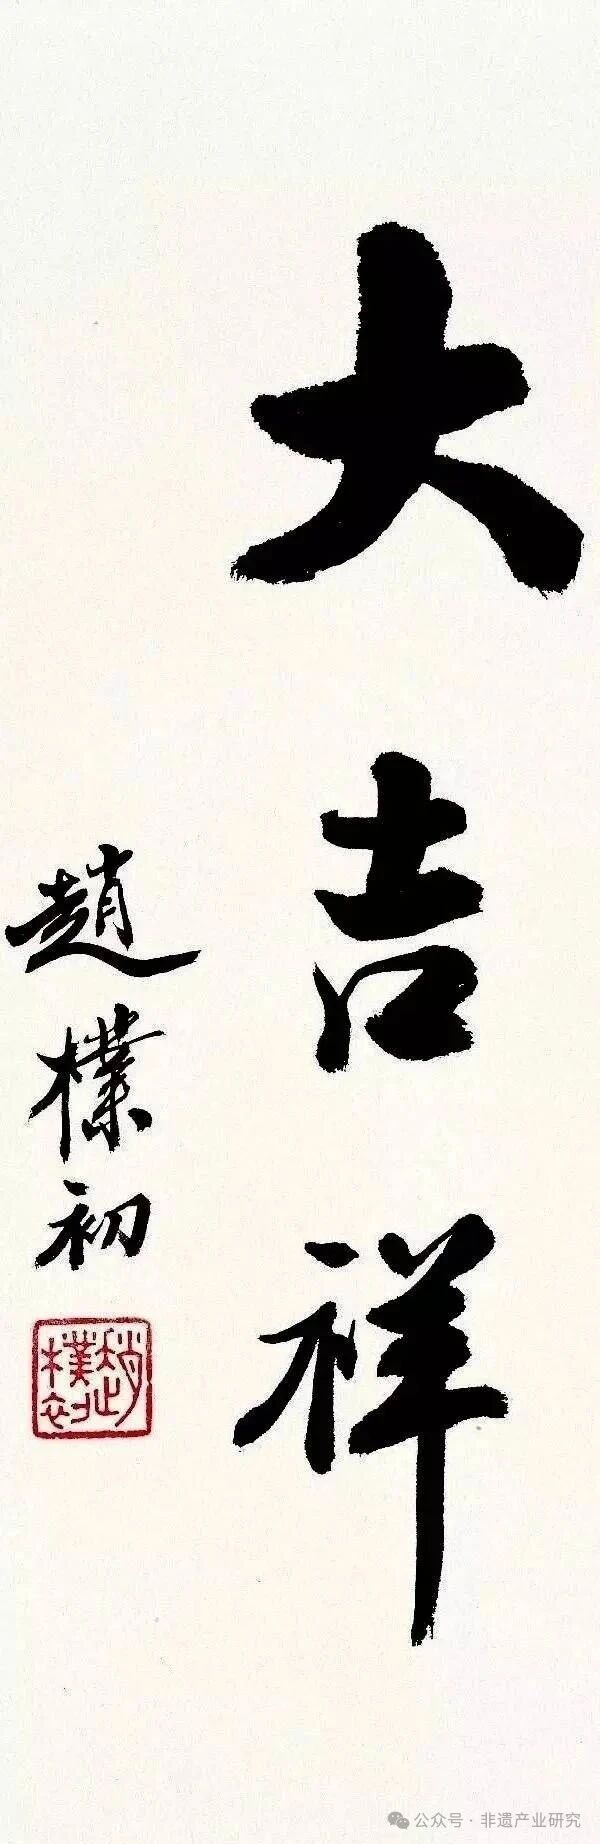 大吉祥
趙樸初
趙樸初
公众号·非遗产业研究